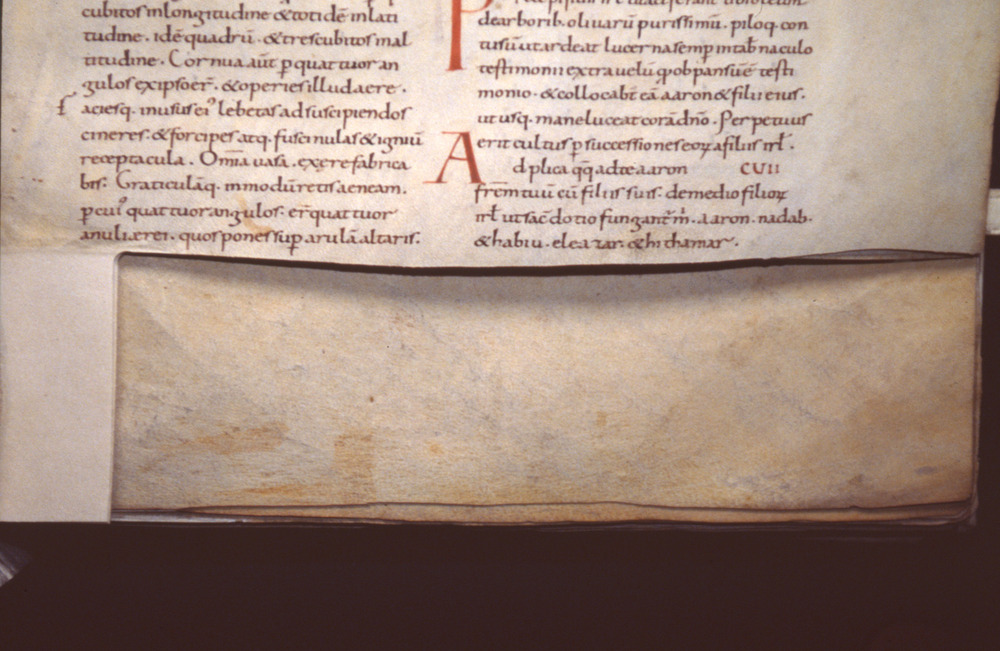 cubitos in longitudine & totidē in lati
tudine. idē quadrū. & tres cubitos in al
titudine. Cornua aūt p quattuor an
gulos ex ipso er̄. & operies illud aere.
faciesq. in usus ei' lebetas ad suscipiendos
cineres. & forcipes atq. fuscinulas & igniū
receptacula. Om̄ia uasa. ex ęre fabrica
bis. Graticulāq. in modū retis aeneam.
p cui' quattuor angulos. er̄ quattuor
anuli ęrei. quos pones sup arulā altaris.
P
de arborib. oliuarū purissimū. piloq. con
tusū ut ardeat lucerna semp in tab̄naculo
testimonii extra uelū q̄ obpansū ē testi
monio. & collocab̄t eā aaron & filii eius.
ut usq. mane luceat corā dn̄o. Perpetuus
erit cultus p successiones eoꝝ a filiis isrl̄.
Ad plica qq̨ ad te aaron CVII
fr̄em tuū cū filiis suis. de medio filioꝝ
isrl̄ ut sac̄dotio fungant̄ m̄. aaron. nadab.
& habiu. eleazar. & hithamar.